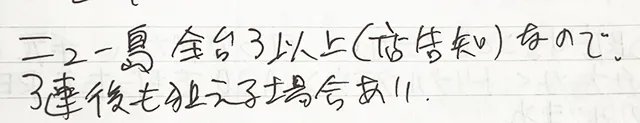 ニュー島 全台3以上(店告知)なので、
3連後も狙える場合あり.